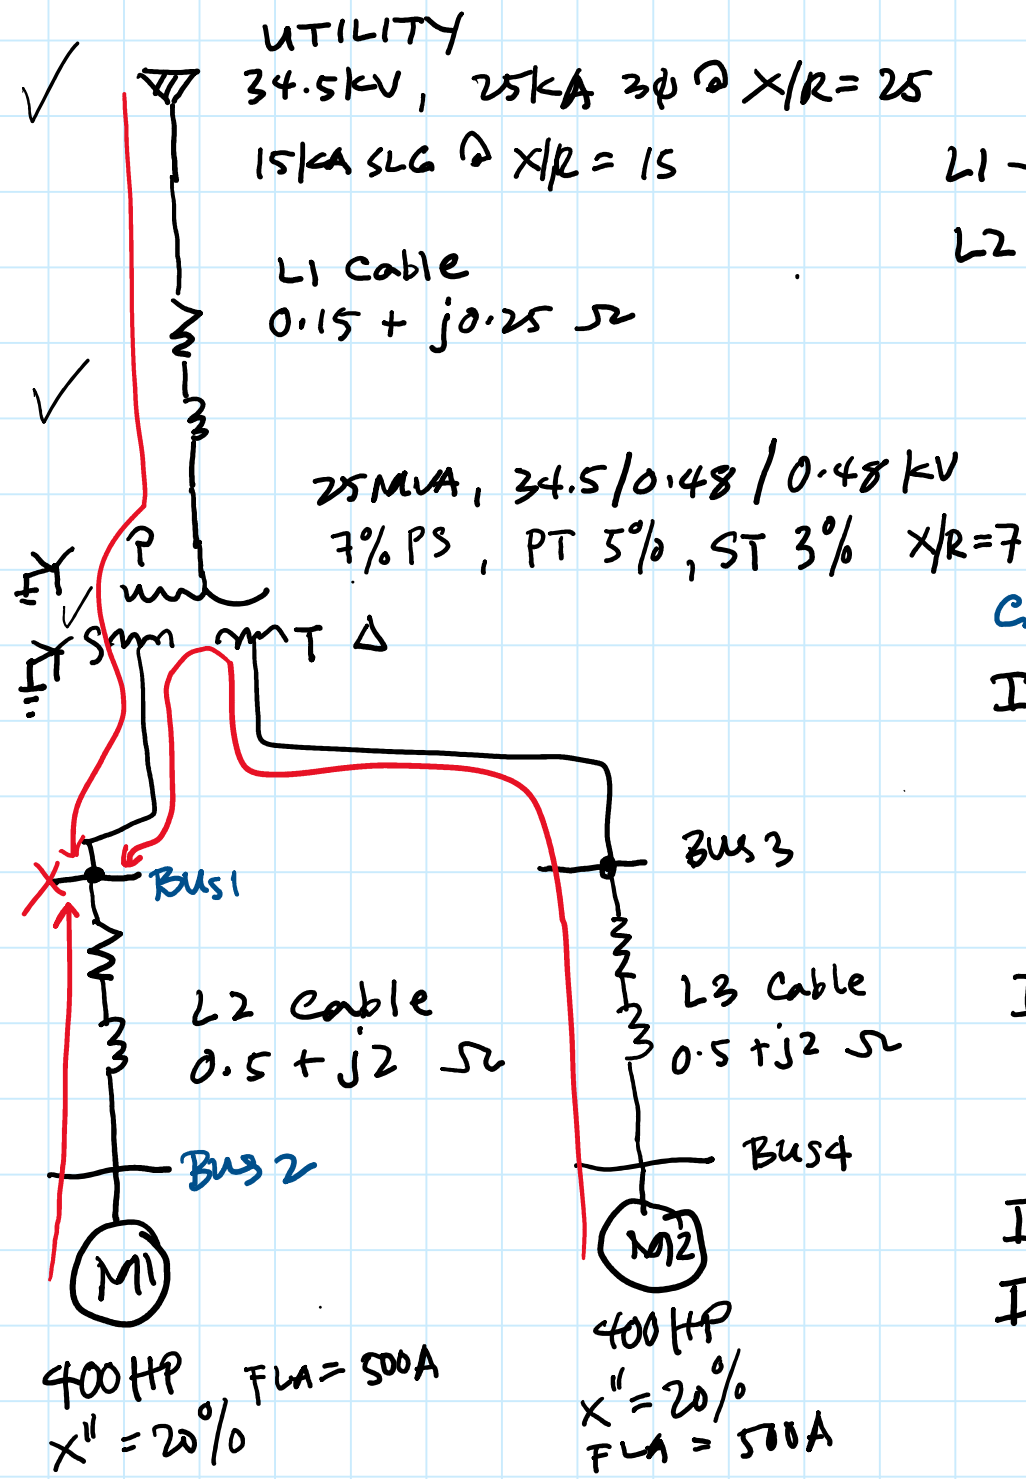 UTILITY
34.5kV, 25kA 3φ @ X/R = 25
15kA SLG @ X/R = 15
L1 -
L2
L1 Cable
0.15 + j0.25 Ω
25MVA, 34.5/0.48/0.48 kV
7% PS, PT 5%, ST 3% X/R=7
P
S
T Δ
I
Bus 3
Bus1
L2 Cable
0.5 + j2 Ω
L3 Cable
0.5 + j2 Ω
I
Bus 2
Bus4
M1
M2
I
I
400HP FLA = 500A
X" = 20%
400HP
X" = 20%
FLA = 500A